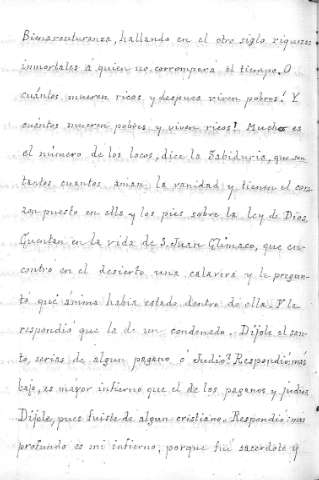 Bienaventuranza, hallando en el otro siglo riquezas
inmortales á quien no corromperá el tiempo. O
cuántos mueren ricos, y despues viven pobres! Y
cuántos mueren pobres y viven ricos! Mucho es
el número de los locos, dice la Sabiduria, que son
tantos cuantos aman la vanidad y tienen el cora-
zon puesto en ella y los pies sobre la ley de Dios.
Cuentan en la vida de S. Juan Clímaco, que en-
contró en el desierto una calavera y le pregun-
tó qué ánima habia estado dentro de ella. Y la
respondió que la de un condenado. Díjole el san-
to, serias de algun pagano ó Judio? Respondió: mas
bajo, es mayor infierno que el de los paganos y judios.
Díjole, pues fuiste de algun cristiano. Respondió: mas
profundo es mi infierno, porque fuí sacerdote y